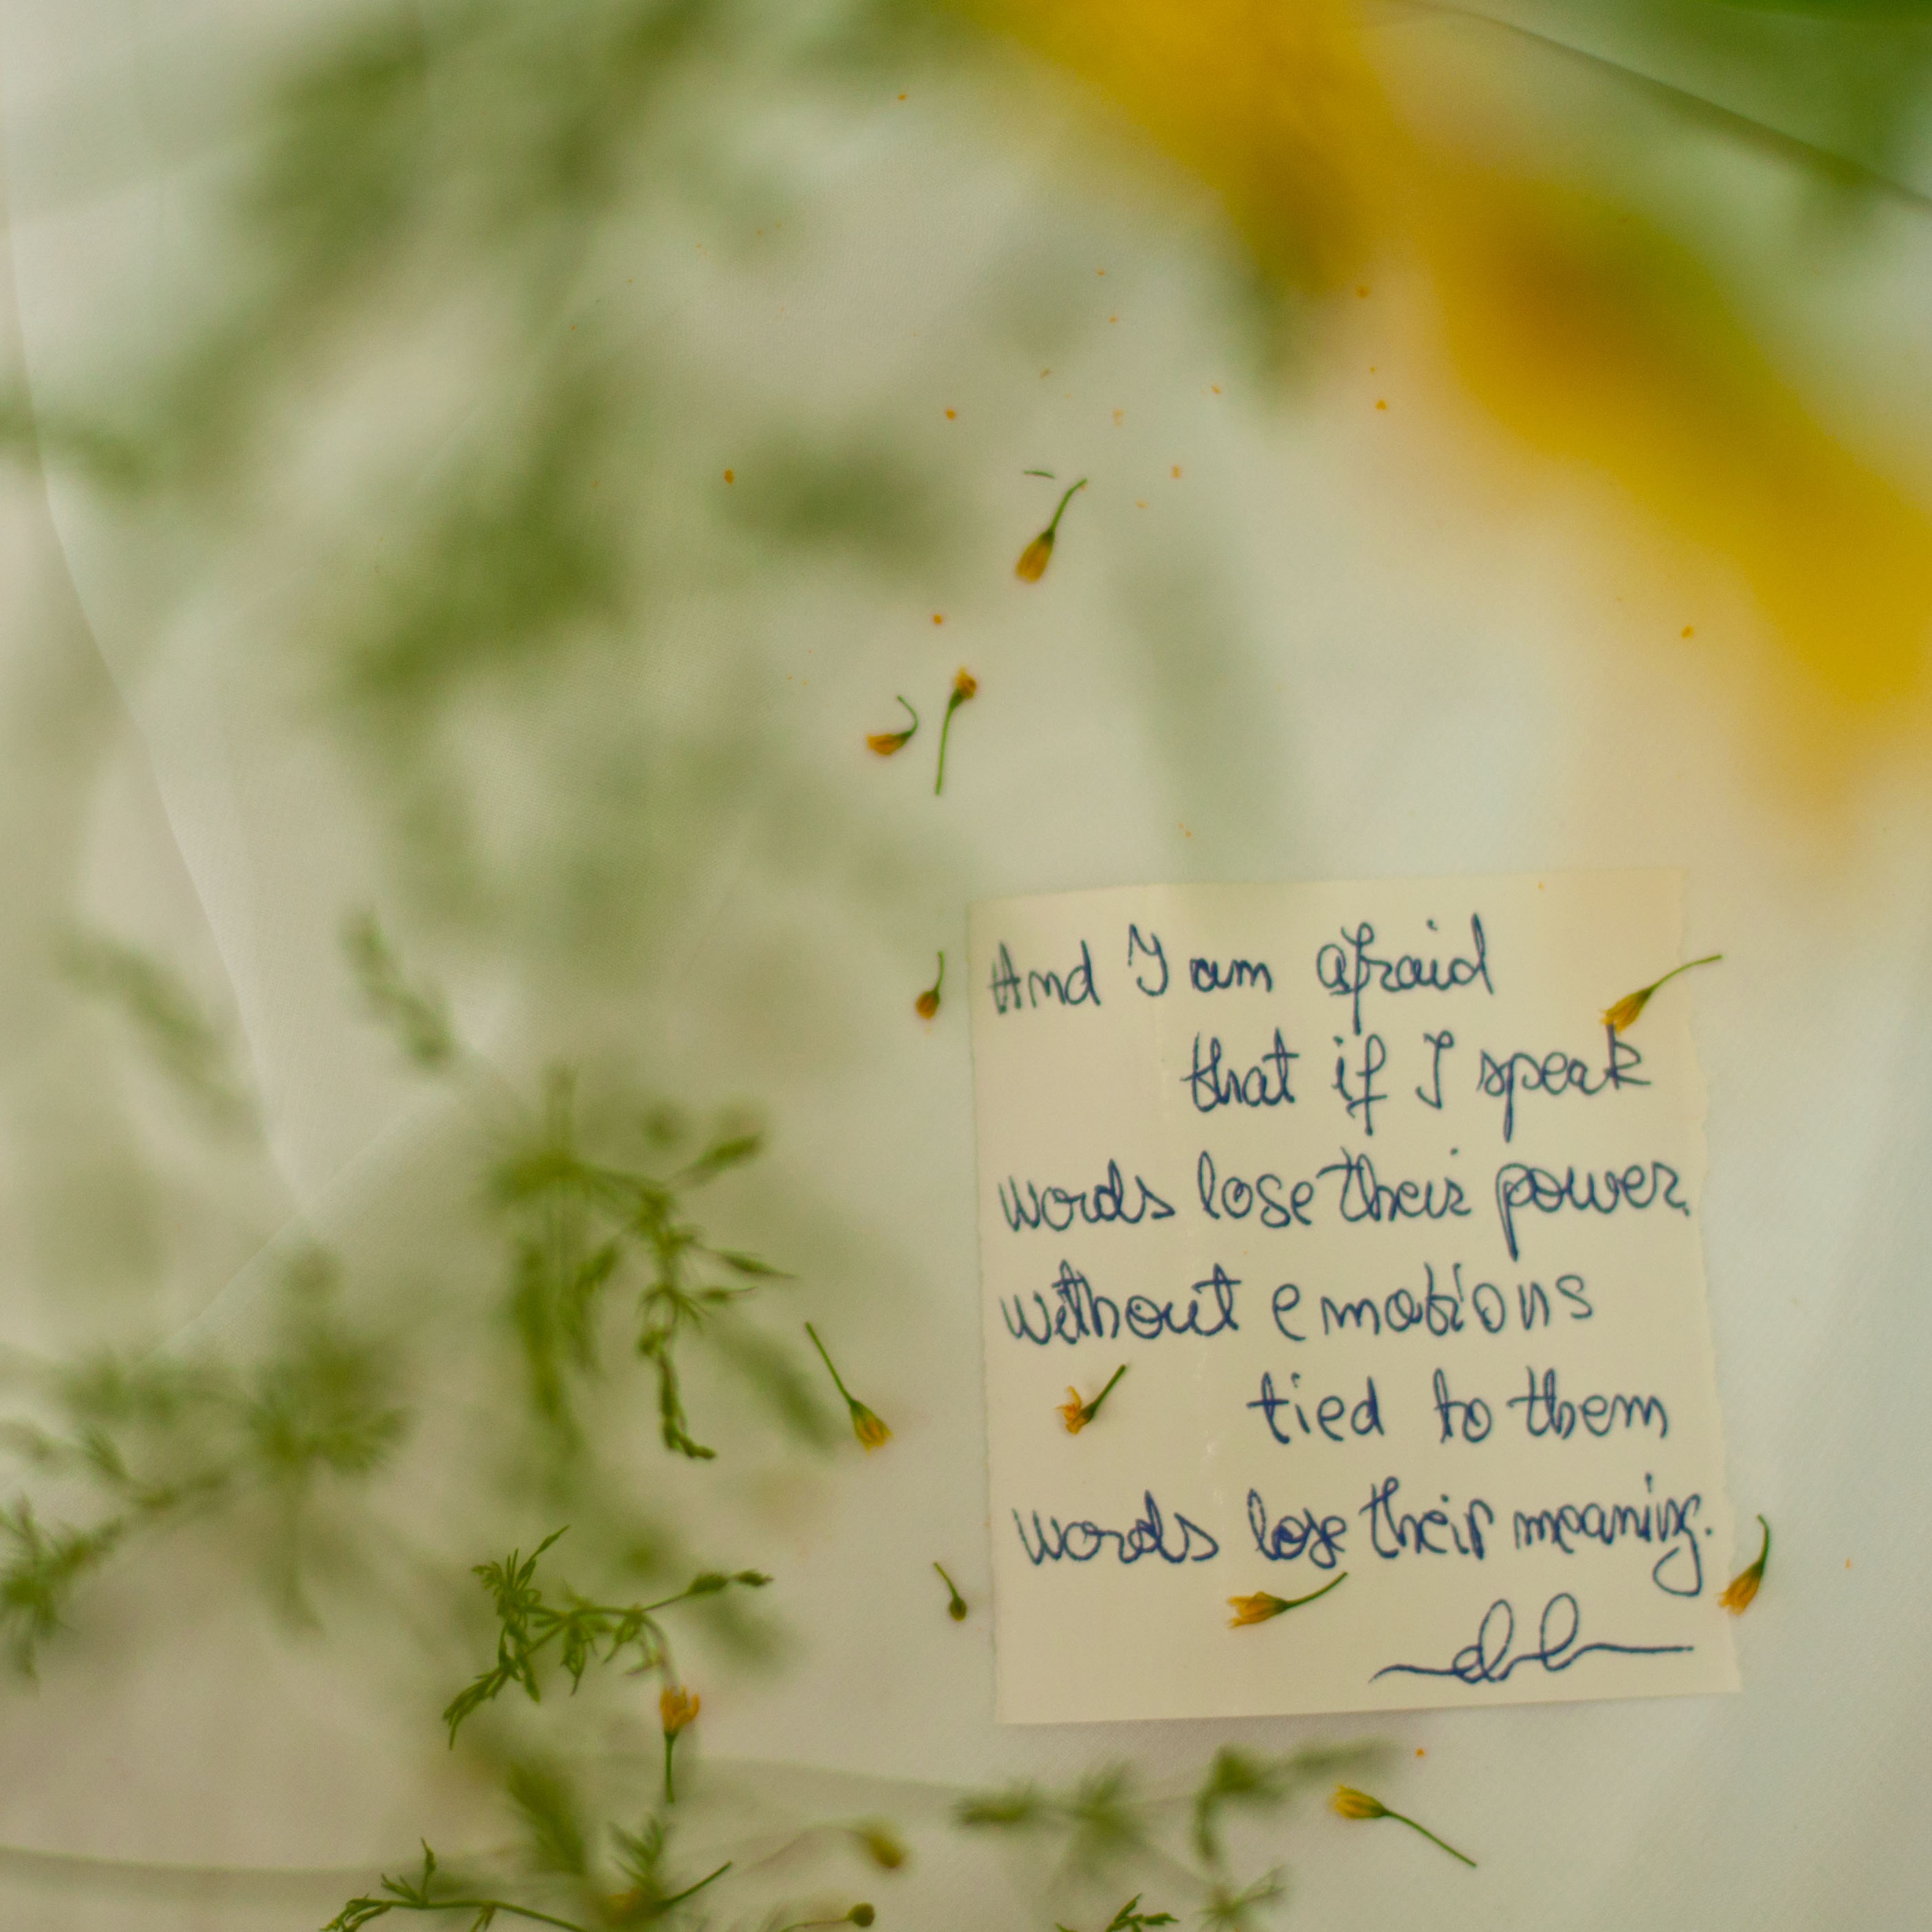 And I am afraid
that if I speak
words lose their power
without emotions
tied to them
words lose their meaning.